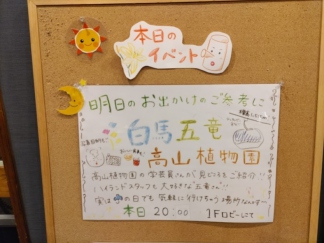 本日の
イベント
明日のお出かけのご参考に
白馬五竜
高山植物園
高山植物園の学芸員さんが見どころをご紹介!!
ハイランドスタッフも大好きな"五竜さん"!!
実は の日でも気軽に行けちゃう場所なんです
本日 20:00 1Fロビーにて